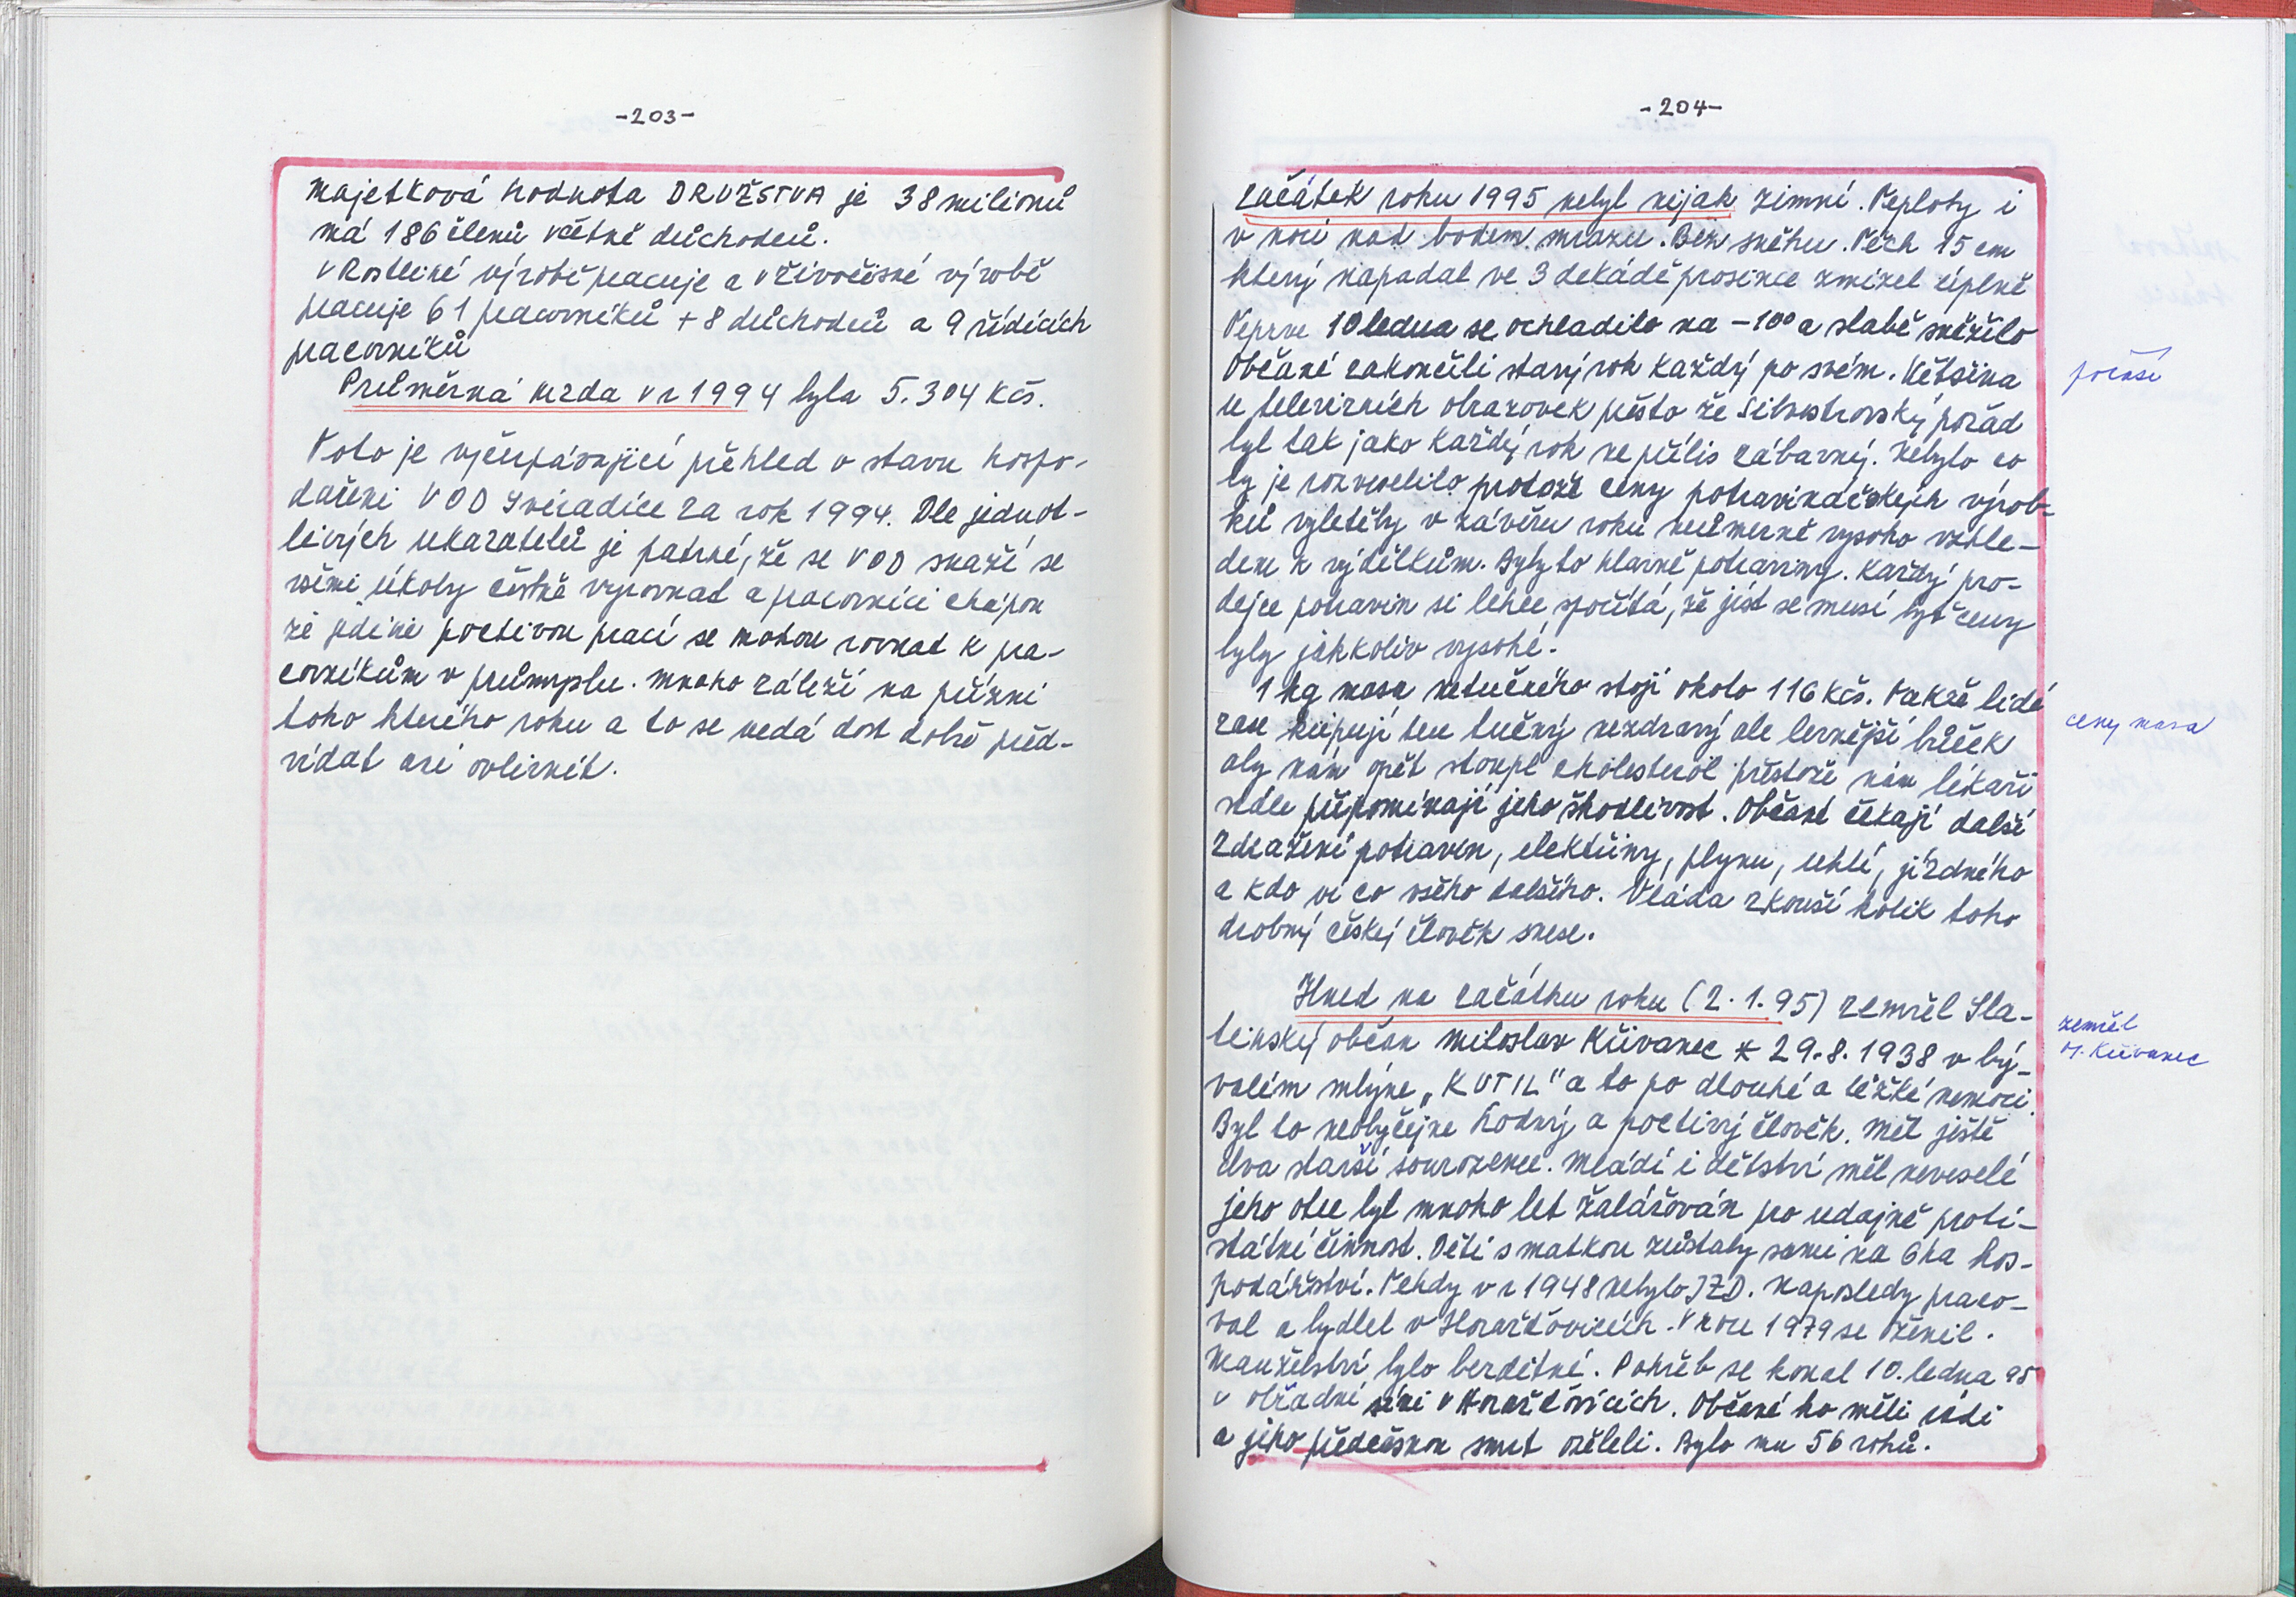 -203-
Majetková hodnota DRUŽSTVA je 38 milionů
má 186 členů včetně důchodců.
V Rostliné výrobě pracuje a v živočišné výrobě
pracuje 61 pracovníků + 8 důchodců a 9 řídících
pracovníků
Průměrná mzda v r 1994 byla 5.304 Kčs.
Toto je vyčerpávající přehled o stavu hospo-
daření VOD Svéradice za rok 1994. Dle jednot-
livých ukazatelů je patrné, že se VOD snaží se
všemi úkoly čestně vyrovnat a pracovníci chápou
že jedině poctivou prací se mohou rovnat k pra-
covníkům v průmyslu. Mnoho záleží na přízni
toho kterého roku a to se nedá dost dobře před-
vídat ani ovlivnit.
-204-
Začátek roku 1995 nebyl nijak zimní. Teploty i
v noci nad bodem mrazu. Bez sněhu. Těch 15 cm
který napadal ve 3 dekádě prosince zmizel úplně
Teprve 10 ledna se ochladilo na -10° a slabě sněžilo
Občané zakončili starý rok každý po svém. Většina
u televizních obrazovek přesto že Silvestrovský pořad
byl tak jako každý rok ne příliš zábavný. Nebylo co
by je rozveselilo protože ceny potravinářských výrob-
ků vyletěly v závěru roku neúmerně vysoko vzhle-
dem k výdělkům. Byly to hlavně potraviny. Každý pro-
dejce potravin si lehce spočítá, že jíst se musí byť ceny
byly jakkoliv vysoké.
1 kg masa netučného stojí okolo 116 Kčs. Takže lidé
zase kupují ten tučný nezdravý ale levnější bůček
aby nám opět stoupl cholesterol přestože nám lékaři
stále připomínají jeho škodlivost. Občané čekají další
zdražení potravin, elektřiny, plynu, uhlí, jízdného
a kdo ví co všeho dalšího. Vláda zkouší kolik toho
drobný českej člověk snese.
Hned na začátku roku (2.1.95) zemřel Sla-
tinský občan Miloslav Křivanec * 29.8.1938 v bý-
valém mlýne „KUTIL" a to po dlouhé a těžké nemoci.
Byl to neobyčejne hodný a poctivý člověk. Měl ještě
dva starší sourozence. Mládí i dětství měl neveselé
jeho otec byl mnoho let žalářován pro údajně proti-
státní činnost. Děti s matkou zůstaly samy na 6 ha hos-
podářství. Tehdy v r 1948 nebylo JZD. Naposledy praco-
val a bydlel v Horažďovicích. V roce 1979 se oženil.
Manželství bylo bezdětné. Pohřeb se konal 10. ledna 95
v obřadní síni v Horažďovicích. Občané ho měli rádi
a jeho předčasnou smrt oželeli. Bylo mu 56 roků.
počasí
ceny masa
zemřel
M. Křivanec